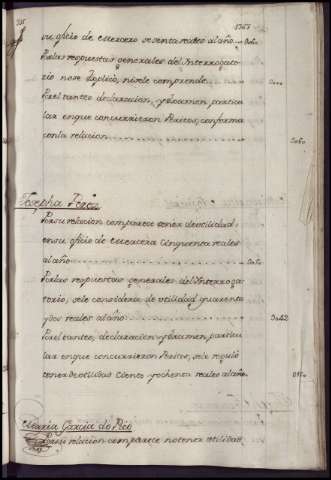 su oficio de cuecero sesenta reales al año
Por las respuestas generales del Interrogato-
rio no se explicó, ni se le comprende
Por el tanteo, declaracion, y examen particu-
lar en que concurrieron Peritos, conforma
con la relacion
Josepha Perez
Por su relacion comparece tener de utilidad
en su oficio de cuecera cinquenta reales
al año
Por las respuestas generales del Interroga-
torio, se le considera de utilidad quarenta
y dos reales al año 0042
Por el tanteo, declaracion y examen, particu
lar en que concurrieron Peritos, se le reguló
tener de utilidad ciento y ochenta reales al año
Maria Garcia do Rio
Por su relacion comparece no tener utilidad